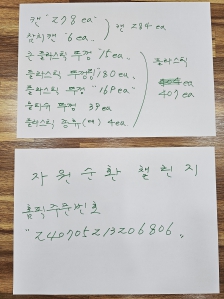 캔 "278 ea" ) 캔 284 ea
참치캔 "6 ea"
큰 플라스틱 뚜껑 "15 ea" 플라스틱
플라스틱 뚜껑 180 ea
플라스틱 뚜껑 "169 ea" 407 ea
물티슈 뚜껑 39 ea
플라스틱 종류(대) 4 ea
자원순환 챌린지
홈픽주문번호
"240705213206806"